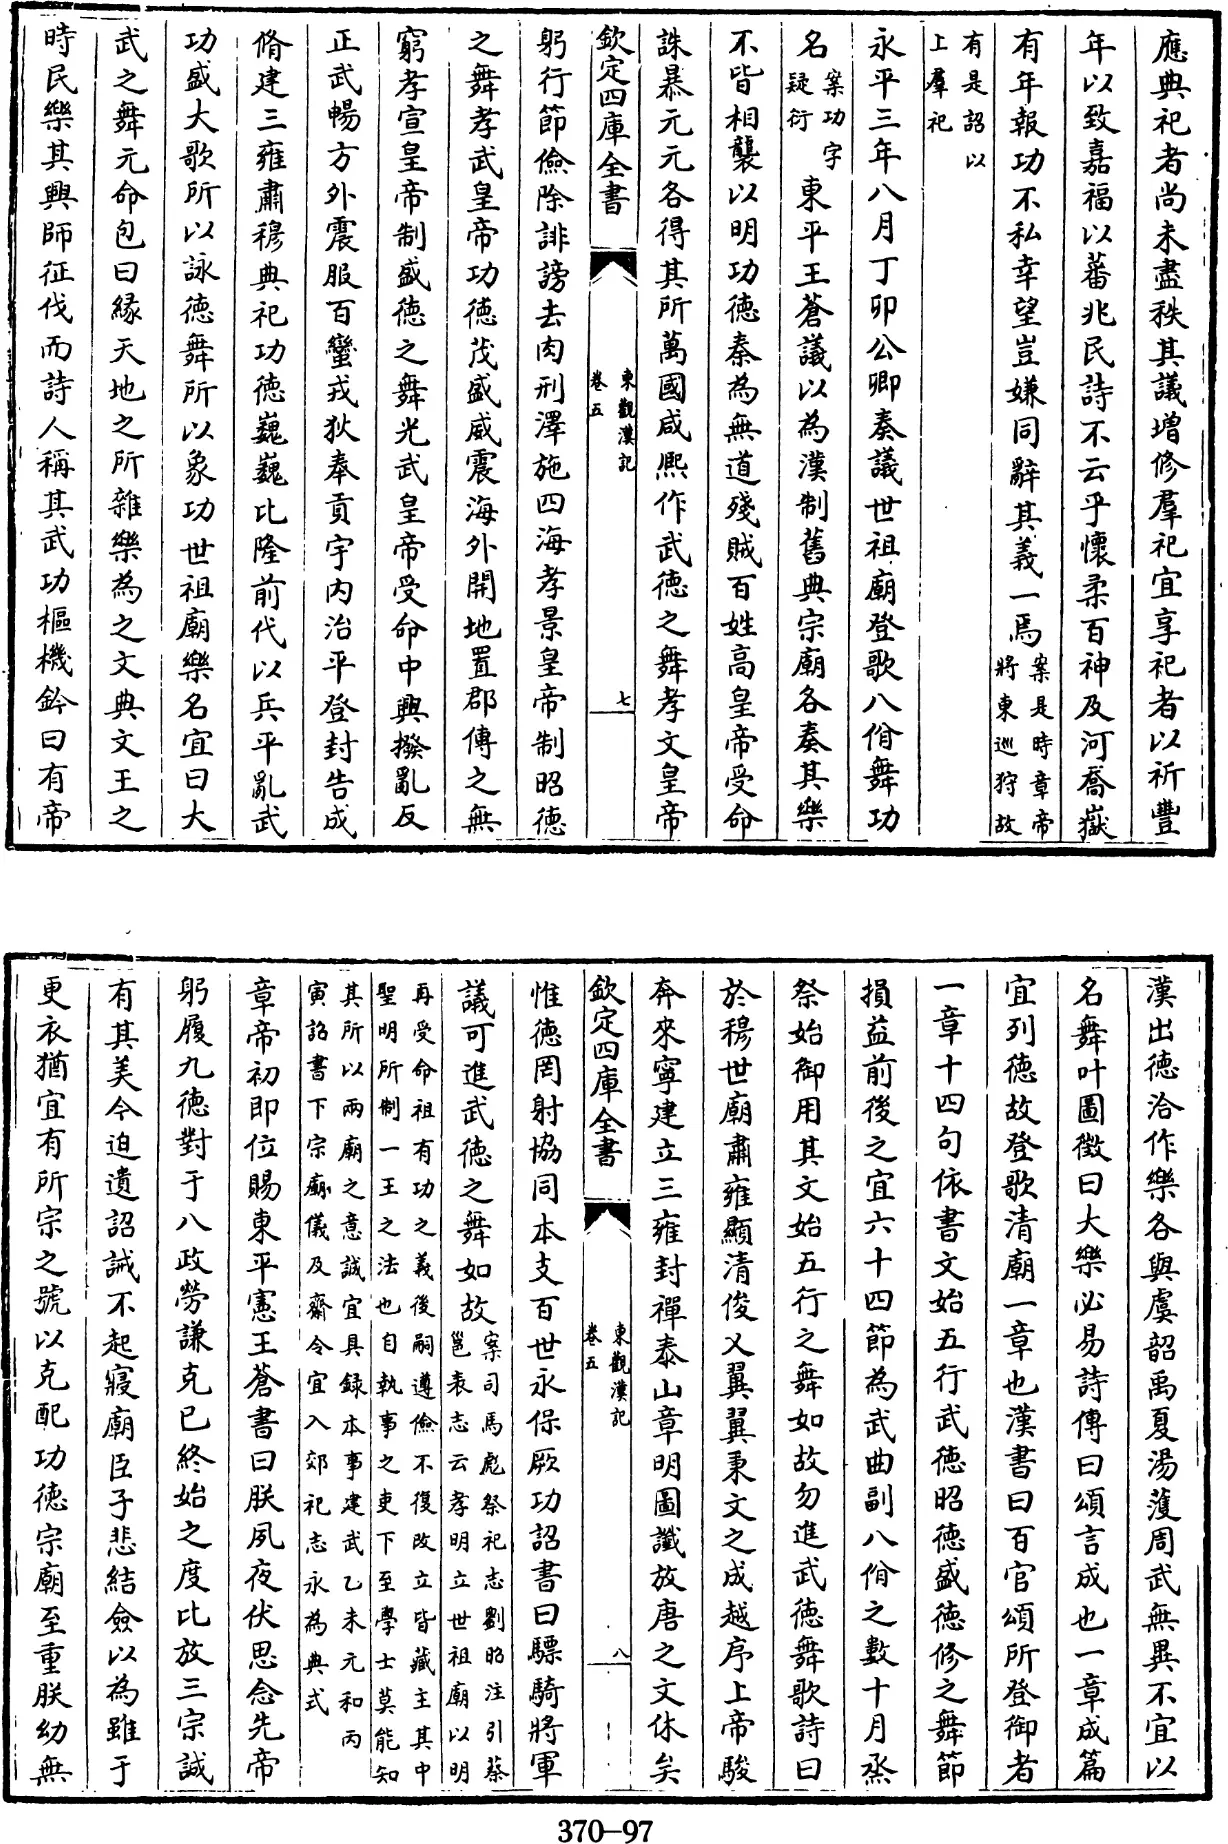 應典祀者尚未盡秩其議增修羣祀宜享祀者以祈豐
年以致嘉福以蕃兆民詩不云乎懷柔百神及河喬嶽
有年報功不私幸望豈嫌同辭其義一焉案是時章帝將東巡狩故
有是詔以上羣祀
永平三年八月丁卯公卿奏議世祖廟登歌八佾舞功
名案功字疑衍東平王蒼議以為漢制舊典宗廟各奏其樂
不皆相襲以明功德秦為無道殘賊百姓高皇帝受命
誅暴元元各得其所萬國咸熈作武德之舞孝文皇帝
欽定四庫全書
東觀漢記
卷五
七
躬行節儉除誹謗去肉刑澤施四海孝景皇帝制昭德
之舞孝武皇帝功德茂盛威震海外開地置郡傳之無
窮孝宣皇帝制盛德之舞光武皇帝受命中興撥亂反
正武暢方外震服百蠻戎狄奉貢宇内治平登封告成
脩建三雍肅穆典祀功德巍巍比隆前代以兵平亂武
功盛大歌所以詠德舞所以象功世祖廟樂名宜曰大
武之舞元命包曰緣天地之所雜樂為之文典文王之
時民樂其興師征伐而詩人稱其武功樞機鈐曰有帝
漢出德洽作樂各與虞韶禹夏湯濩周武無異不宜以
名舞叶圖徵曰大樂必易詩傳曰頌言成也一章成篇
宜列德故登歌清廟一章也漢書曰百官頌所登御者
一章十四句依書文始五行武德昭德盛德修之舞節
損益前後之宜六十四節為武曲副八佾之數十月烝
祭始御用其文始五行之舞如故勿進武德舞歌詩曰
於穆世廟肅雍顯清俊乂翼翼秉文之成越序上帝駿
奔來寧建立三雍封禪泰山章明圖讖放唐之文休矣
欽定四庫全書
東觀漢記
卷五
八
惟德罔射協同本支百世永保厥功詔書曰驃騎將軍
議可進武德之舞如故案司馬彪祭祀志劉昭注引蔡邕表志云孝明立世祖廟以明
再受命祖有功之義後嗣遵儉不復改立皆藏主其中聖明所制一王之法也自執事之吏下至學士莫能知
其所以兩廟之意誠宜具錄本事建武乙未元和丙寅詔書下宗廟儀及齋令宜入郊祀志永為典式
章帝初即位賜東平憲王蒼書曰朕夙夜伏思念先帝
躬履九德對于八政勞謙克已終始之度比放三宗誠
有其美今迫遺詔誡不起寢廟臣子悲結僉以為雖于
更衣猶宜有所宗之號以克配功德宗廟至重朕幼無
370-97